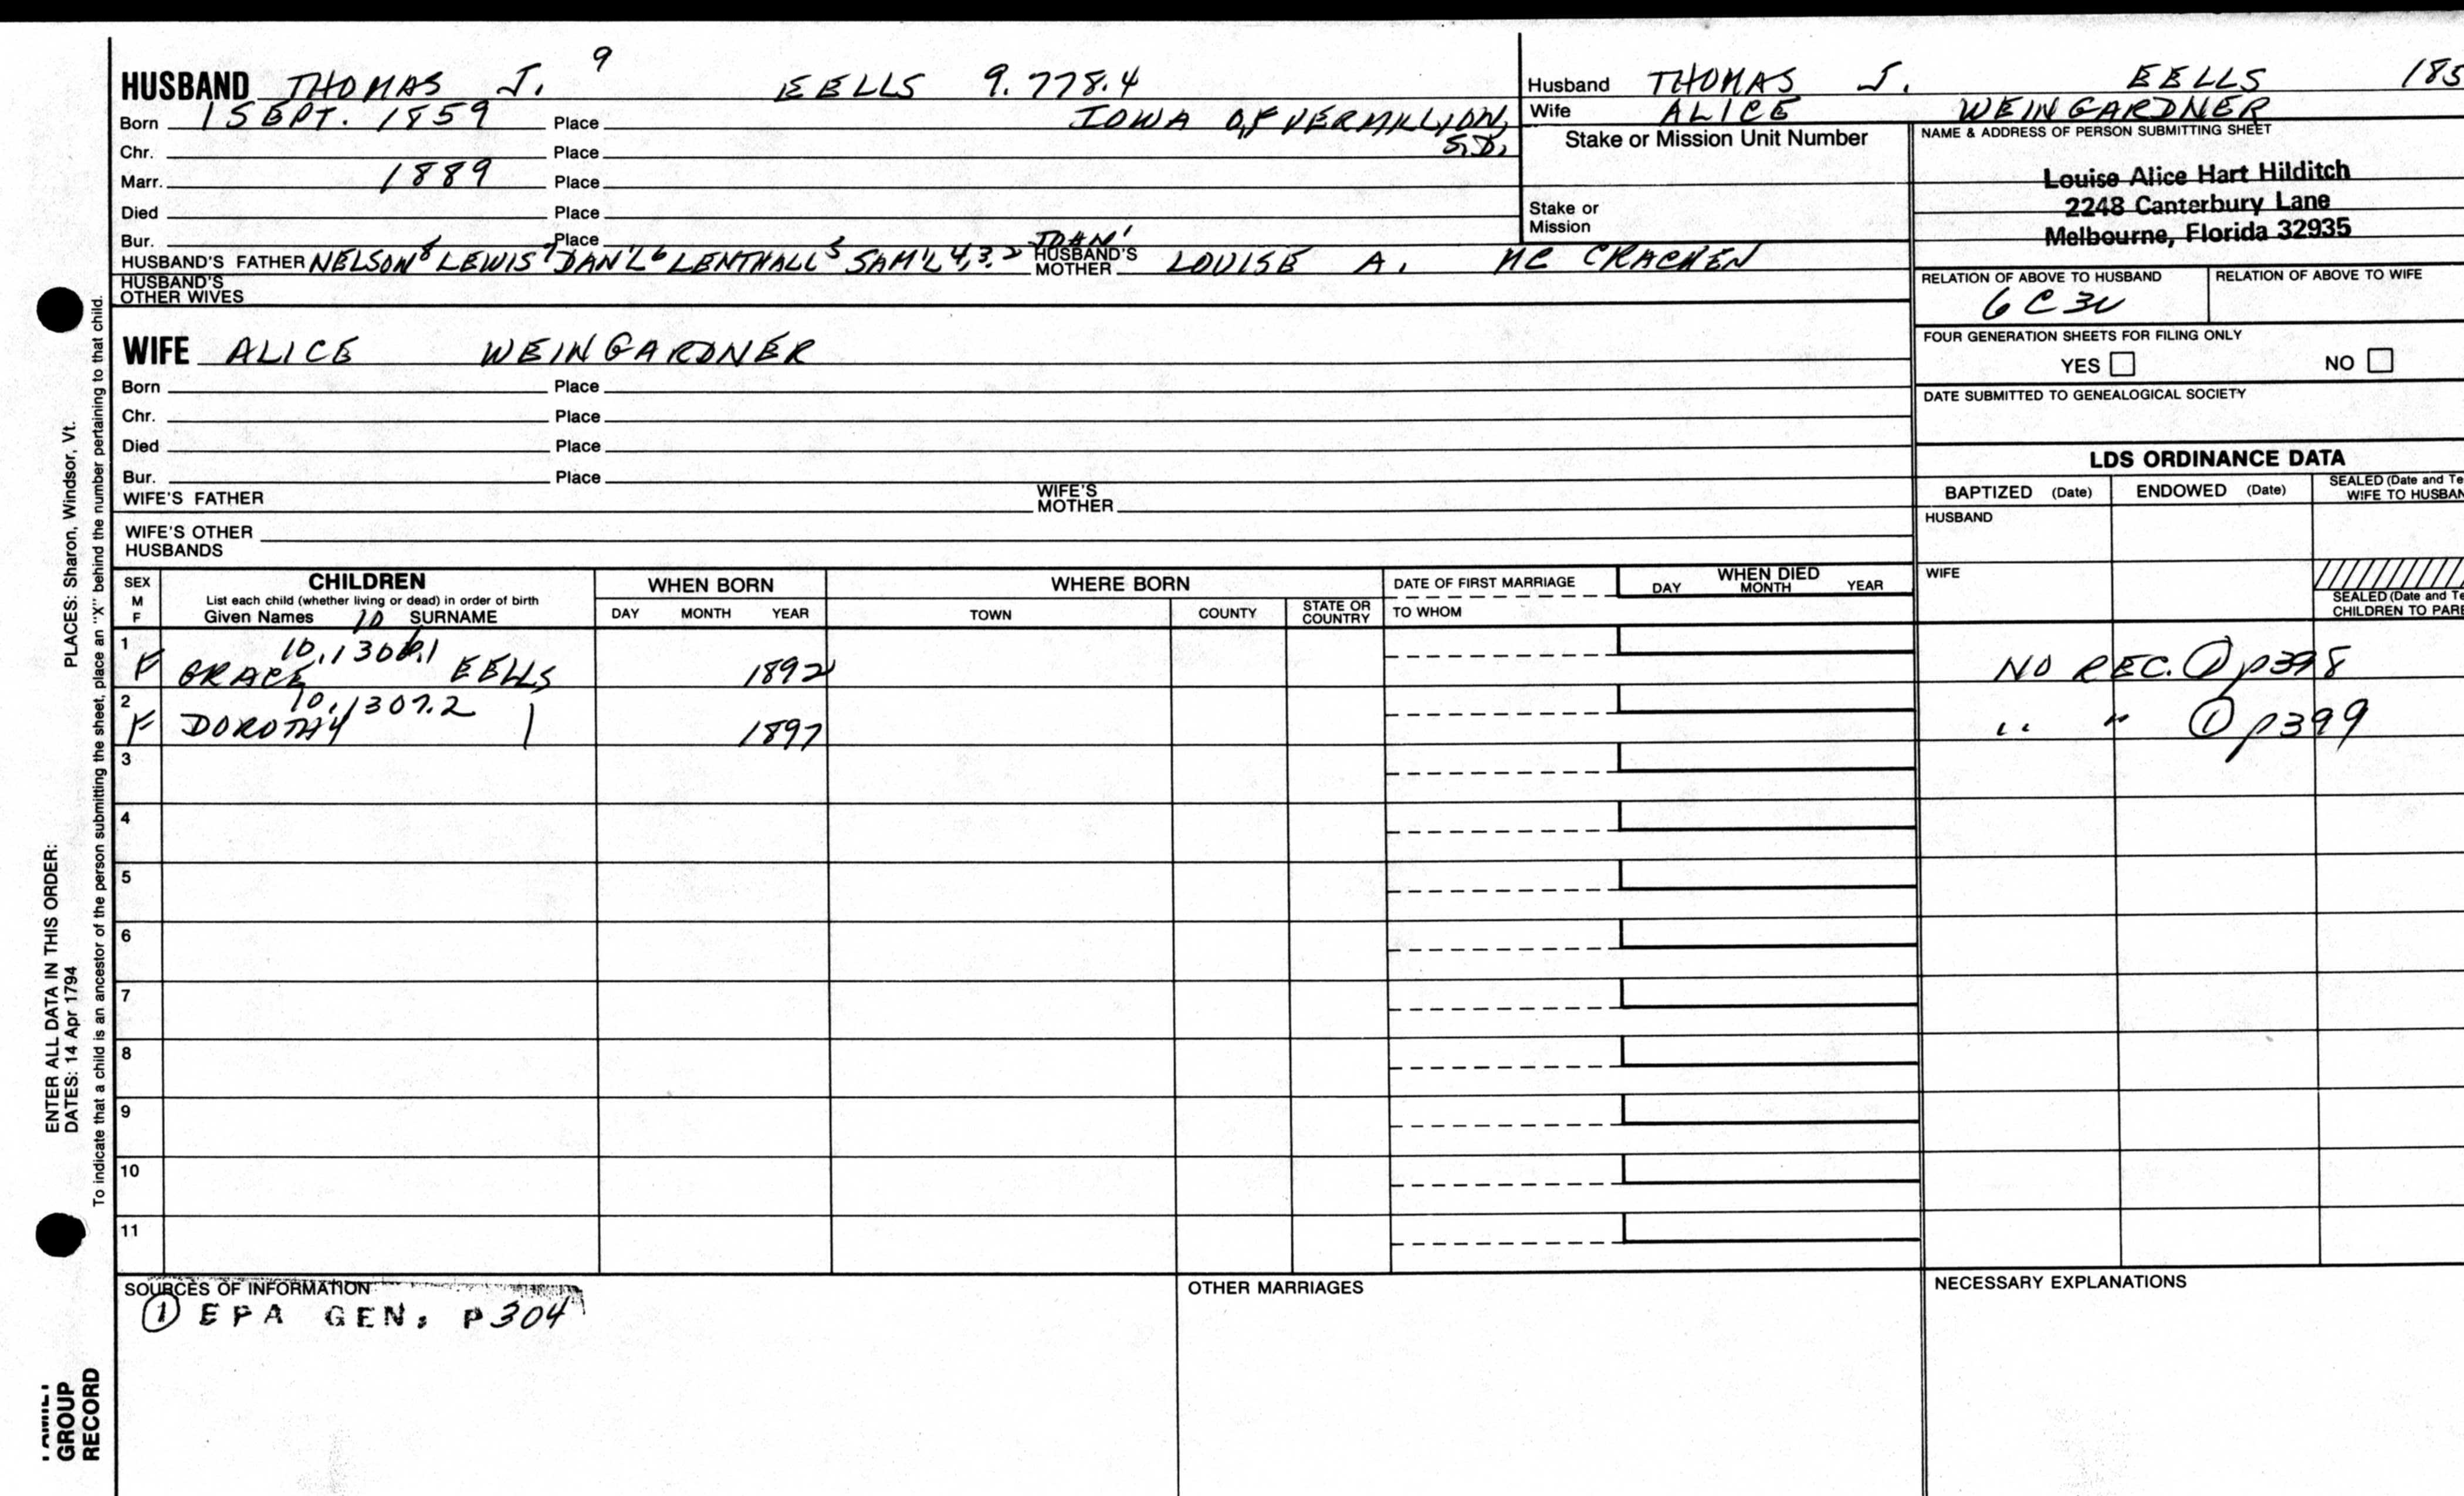 HUSBAND THOMAS J. 9 EELLS 9.778.4
Born 1 SEPT. 1859 Place IOWA OF VERMILLION, S.D.
Chr. Place
Marr. 1889 Place
Died Place
Bur. Place
HUSBAND'S FATHER NELSON 8 LEWIS 7 DAN'L 6 LENTHALL 5 SAM'L 4,3,2 JOHN 1 HUSBAND'S MOTHER LOUISE A. MC CRACKEN
HUSBAND'S OTHER WIVES
Husband THOMAS J. EELLS 185
Wife ALICE WEINGARDNER
Stake or Mission Unit Number
Stake or Mission
NAME & ADDRESS OF PERSON SUBMITTING SHEET
Louise Alice Hart Hilditch
2248 Canterbury Lane
Melbourne, Florida 32935
RELATION OF ABOVE TO HUSBAND RELATION OF ABOVE TO WIFE
6C3U
FOUR GENERATION SHEETS FOR FILING ONLY
YES NO
DATE SUBMITTED TO GENEALOGICAL SOCIETY
WIFE ALICE WEINGARDNER
Born Place
Chr. Place
Died Place
Bur. Place
WIFE'S FATHER WIFE'S MOTHER
WIFE'S OTHER HUSBANDS
LDS ORDINANCE DATA
BAPTIZED (Date) ENDOWED (Date) SEALED (Date and Te
WIFE TO HUSBAN
HUSBAND
WIFE
SEALED (Date and Te
CHILDREN TO PARE
SEX M F
CHILDREN
List each child (whether living or dead) in order of birth
Given Names 10 SURNAME
WHEN BORN
DAY MONTH YEAR
WHERE BORN
TOWN COUNTY STATE OR COUNTRY
DATE OF FIRST MARRIAGE
TO WHOM
WHEN DIED
DAY MONTH YEAR
1 10,1306.1
F GRACE EELLS 1892 NO REC. ① p398
2 10,1307.2
F DOROTHY | 1897 " " ① p399
3
4
5
6
7
8
9
10
11
SOURCES OF INFORMATION
① EFA GEN. P304
OTHER MARRIAGES
NECESSARY EXPLANATIONS
ENTER ALL DATA IN THIS ORDER:
DATES: 14 Apr 1794 PLACES: Sharon, Windsor, Vt.
To indicate that a child is an ancestor of the person submitting the sheet, place an "X" behind the number pertaining to that child.
FAMILY
GROUP
RECORD